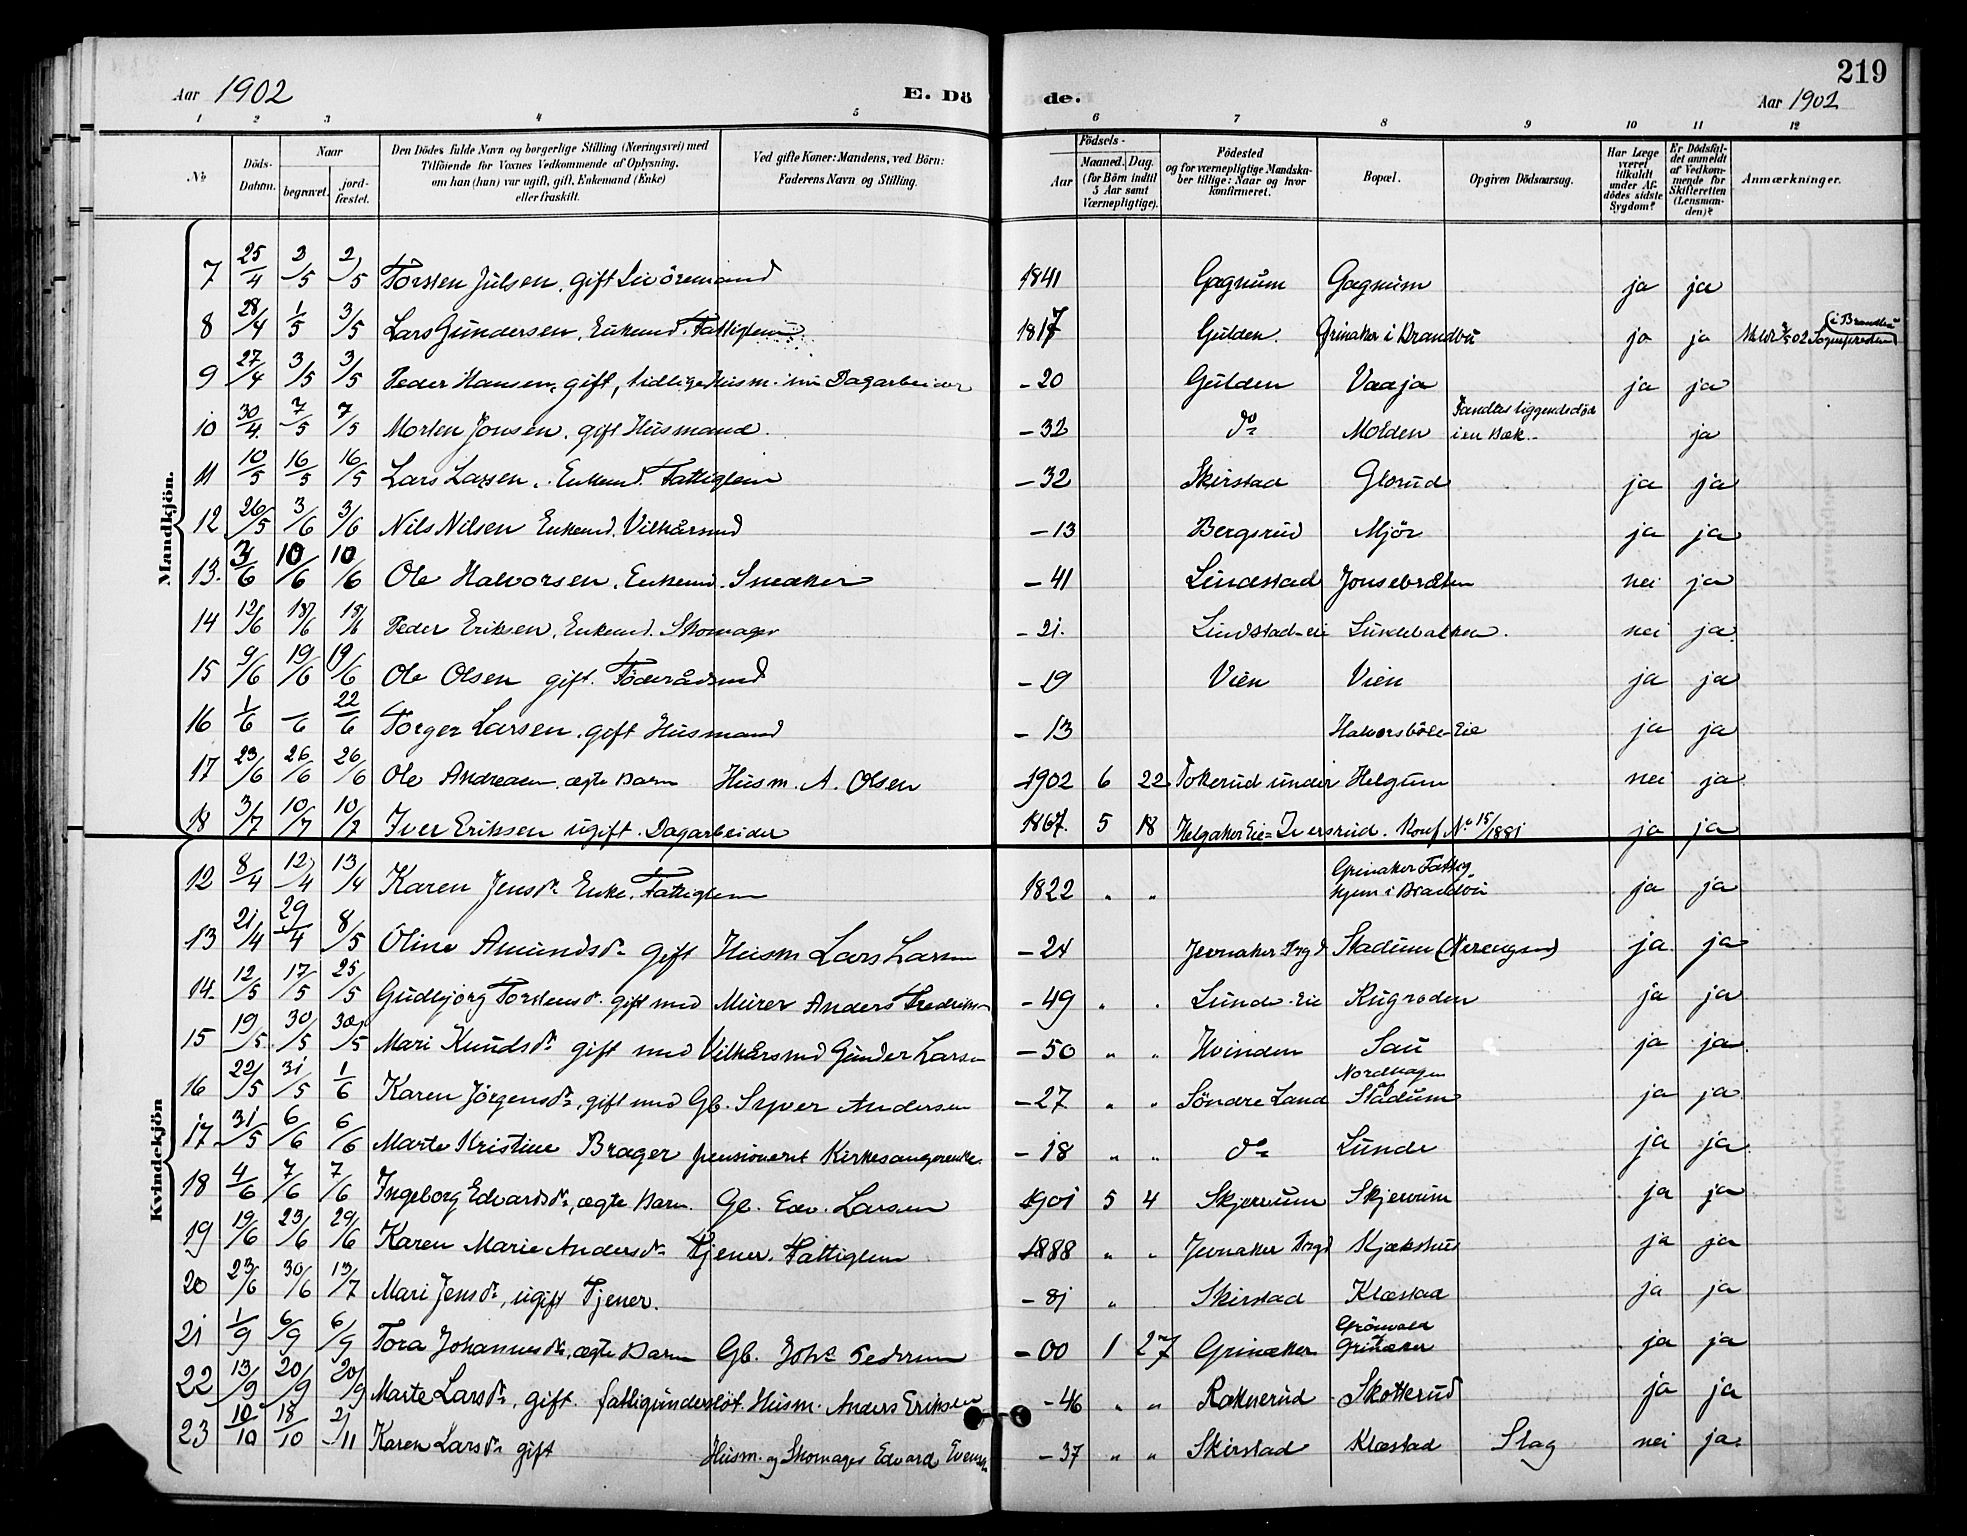 219
Aar 1902 E. Dö de. Aar 1902
1 2 3 4 5 6 7 8 9 10 11 12
No Döds-Datum. Naar begravet. jord-fæstet. Den Dödes fulde Navn og borgerlige Stilling (Næringsvei) med Tilföiende for Voxnes Vedkommende af Oplysning, om han (hun) var ugift, gift, Enkemand (Enke) eller fraskilt. Ved gifte Koner: Mandens, ved Börn: Faderens Navn og Stilling. Födsels- Aar Maaned. Dag. (for Börn indtil 5 Aar samt Værnepligtige). Födested og for værnepligtige Mandska-ber tillige: Naar og hvor konfirmeret. Bopæl. Opgiven Dödsaarsag. Har Læge været tilkaldt under Af-dödes sidste Sygdom? Er Dödsfal-det anmeldt af Vedkom-mende for Skifteretten (Lensman-den)? Anmærkninger.
Mandkjön.
7 25/4 2/5 2/5 Torsten Julsen, gift Livöremand 1841 Gagnum Gagnum ja ja
8 28/4 1/5 3/5 Lars Gundersen, Enkemd. Fattiglem 1817 Gulden. Grinaker i Brandbu ja ja Sognepresten i Brandbu
9 27/4 3/5 3/5 Peder Hansen, gift, tidligere Husm. nu Dagarbeider -20 Gulden Vaaja ja ja
10 30/4 7/5 7/5 Morten Jonsen, gift Husmand. -32 do Molden Fandtes liggende död i en Bæk. ja
11 10/5 16/5 16/5 Lars Larsen, Enkemd. Fattiglem -32 Skirstad Glorud ja ja
12 26/5 3/6 3/6 Nils Nilsen Enkemd. Vilkårsmd -13 Bergsrud Mjör ja ja
13. 3/6 10/6 10/6 Ole Halvorsen, Enkemd. Snedker -41 Lindstad Jonsebråten nei ja
14 12/6 18/6 15/6 Peder Eriksen, Enkemd. Skomager -21. Lindstad-eie Lundebakken. nei ja
15 9/6 19/6 19/6 Ole Olsen gift. Föderådsmd -19 Vien Vien ja ja
16 1/6 -/6 22/6 Torger Larsen, gift Husmand -13 Halvorsböle Eie ja ja
17 23/6 26/6 26/6 Ole Andreasen, ægte Barn Husm. A. Olsen -1902 6 22 Tokerud under Helgum nei ja
18 3/7 10/7 10/7 Iver Eriksen ugift. Dagarbeider 1867. 5 18 Helgaker Eie = Iversrud. Konf No 15/1881 ja ja
Kvindekjön
12 8/4 12/4 13/4 Karen Jensdr. Enke. Fattiglem 1822 " " Grinaker Fattig-hjem i Brandbu ja ja
13 21/4 29/4 8/5 Oline Amundsdr. gift Husm Lars Larsen -24 Jevnaker Srgd Stadum (Nerengen) ja ja
14. 12/5 17/5 25/5 Gudbjörg Torstensdr. gift med Murer Anders Fredriksen -49 " . Lunde Eie Rugroden ja ja
15 19/5 30/5 30/5 Mari Knudsdr. gift med Vilkårsmd Gunder Larsen -50 " " Hvinden Sau ja ja
16 22/5 31/5 1/6 Karen Jörgensdr., gift med Gb. Syver Andersen -27 " " Söndre Land Nordhagen af Stadum ja ja
17 31/5 6/6 6/6 Marte Kristine Brager pensioneret Kirkesangerenke. -18 " " do Lunde ja ja
18 4/6 7/6 7/6 Ingeborg Edvardsdr., ægte Barn. Gb. Edv. Larsen 1901 5 4 Skjervum Skjervum ja ja
19 19/6 23/6 29/6 Karen Marie Andersdr. Tjener. Fattiglem 1888 " " Jevnaker Srgd Kjækshus ja ja
20 23/6 30/6 13/7 Mari Jensdr., ugift Tjener. -81 " Skirstad Klæstad ja ja
21 1/9 6/9 6/9 Tora Johannesdr., ægte Barn Gb. Johs Pedersen -00 1 27 Grinaker Grönvold Grinaker ja ja
22 13/9 20/9 20/9 Marte Larsdr., gift. fattigunderstöt. Husm. Anders Eriksen -46 " " Raknerud Skotterud ja ja
23 10/10 18/10 2/11 Karen Larsdr. gift Husm. og Skomager Edvard Evensen -37 " " Skirstad Klæstad Slag nei ja.